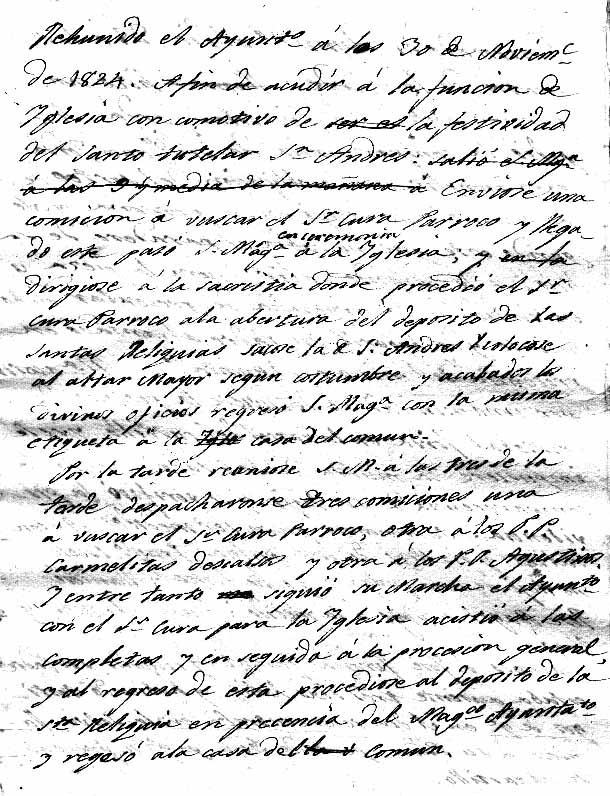 Rehunido el Ayunto á los 30 de Noviemc
de 1824. Afin de acudir á la funcion de
Yglesia con comotivo de ser es la festividad
del santo tutelar Sn Andres: salió el Mga
á las 9 y media de la mañana á Enviose una
comición á vuscar el Sr Cura Parroco y llega
do este pasó S. Maga en ceremonia á la Yglesia, y en la
dirigiose á la sacristia donde procedió el Sr
Cura Parroco ala abertura del deposito de las
santas Reliquias sacose la d S. Andres y colocase
al altar Mayor segun costumbre y acabados los
divinos oficios regresó S. Maga con la misma
etiqueta á la Ygle casa del comun.
Por la tarde reuniose S. M. á las tres de la
tarde despacharonse tres comiciones una
á vuscar el Sr Cura Parroco, otra á los P.P.
Carmelitas descalsos y otra á los P.P. Agustinos.
Y entre tanto siguió su Marcha el Ayunto
con el Sr Cura para la Yglesia acistió á las
completas y en seguida á la procesion general,
y al regreso de esta procediose al deposito de la
sta Reliquia en precencia del Magco Ayuntato
y regesó ala casa del la v Comun.